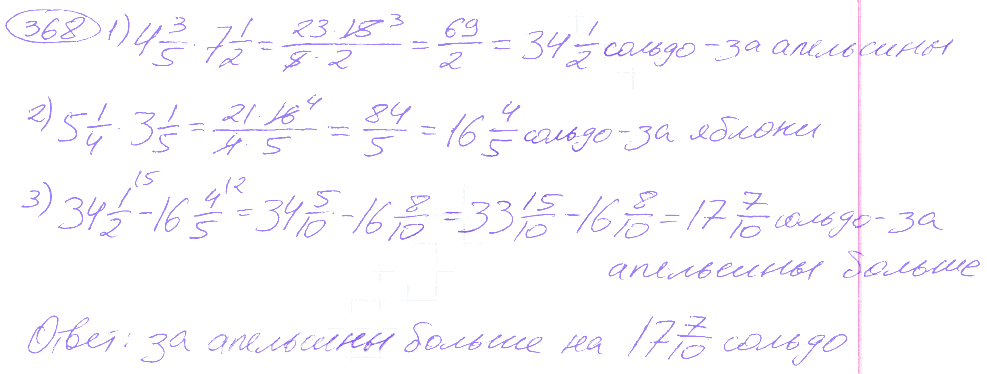 368 1) 4 3/5 · 7 1/2 = 23·15³/5·2 = 69/2 = 34 1/2 сольдо – за апельсины
2) 5 1/4 · 3 1/5 = 21·16⁴/4·5 = 84/5 = 16 4/5 сольдо – за яблоки
3) 34 1/2¹⁵ – 16 4/5¹² = 34 5/10 – 16 8/10 = 33 15/10 – 16 8/10 = 17 7/10 сольдо – за
апельсины больше
Ответ: за апельсины больше на 17 7/10 сольдо